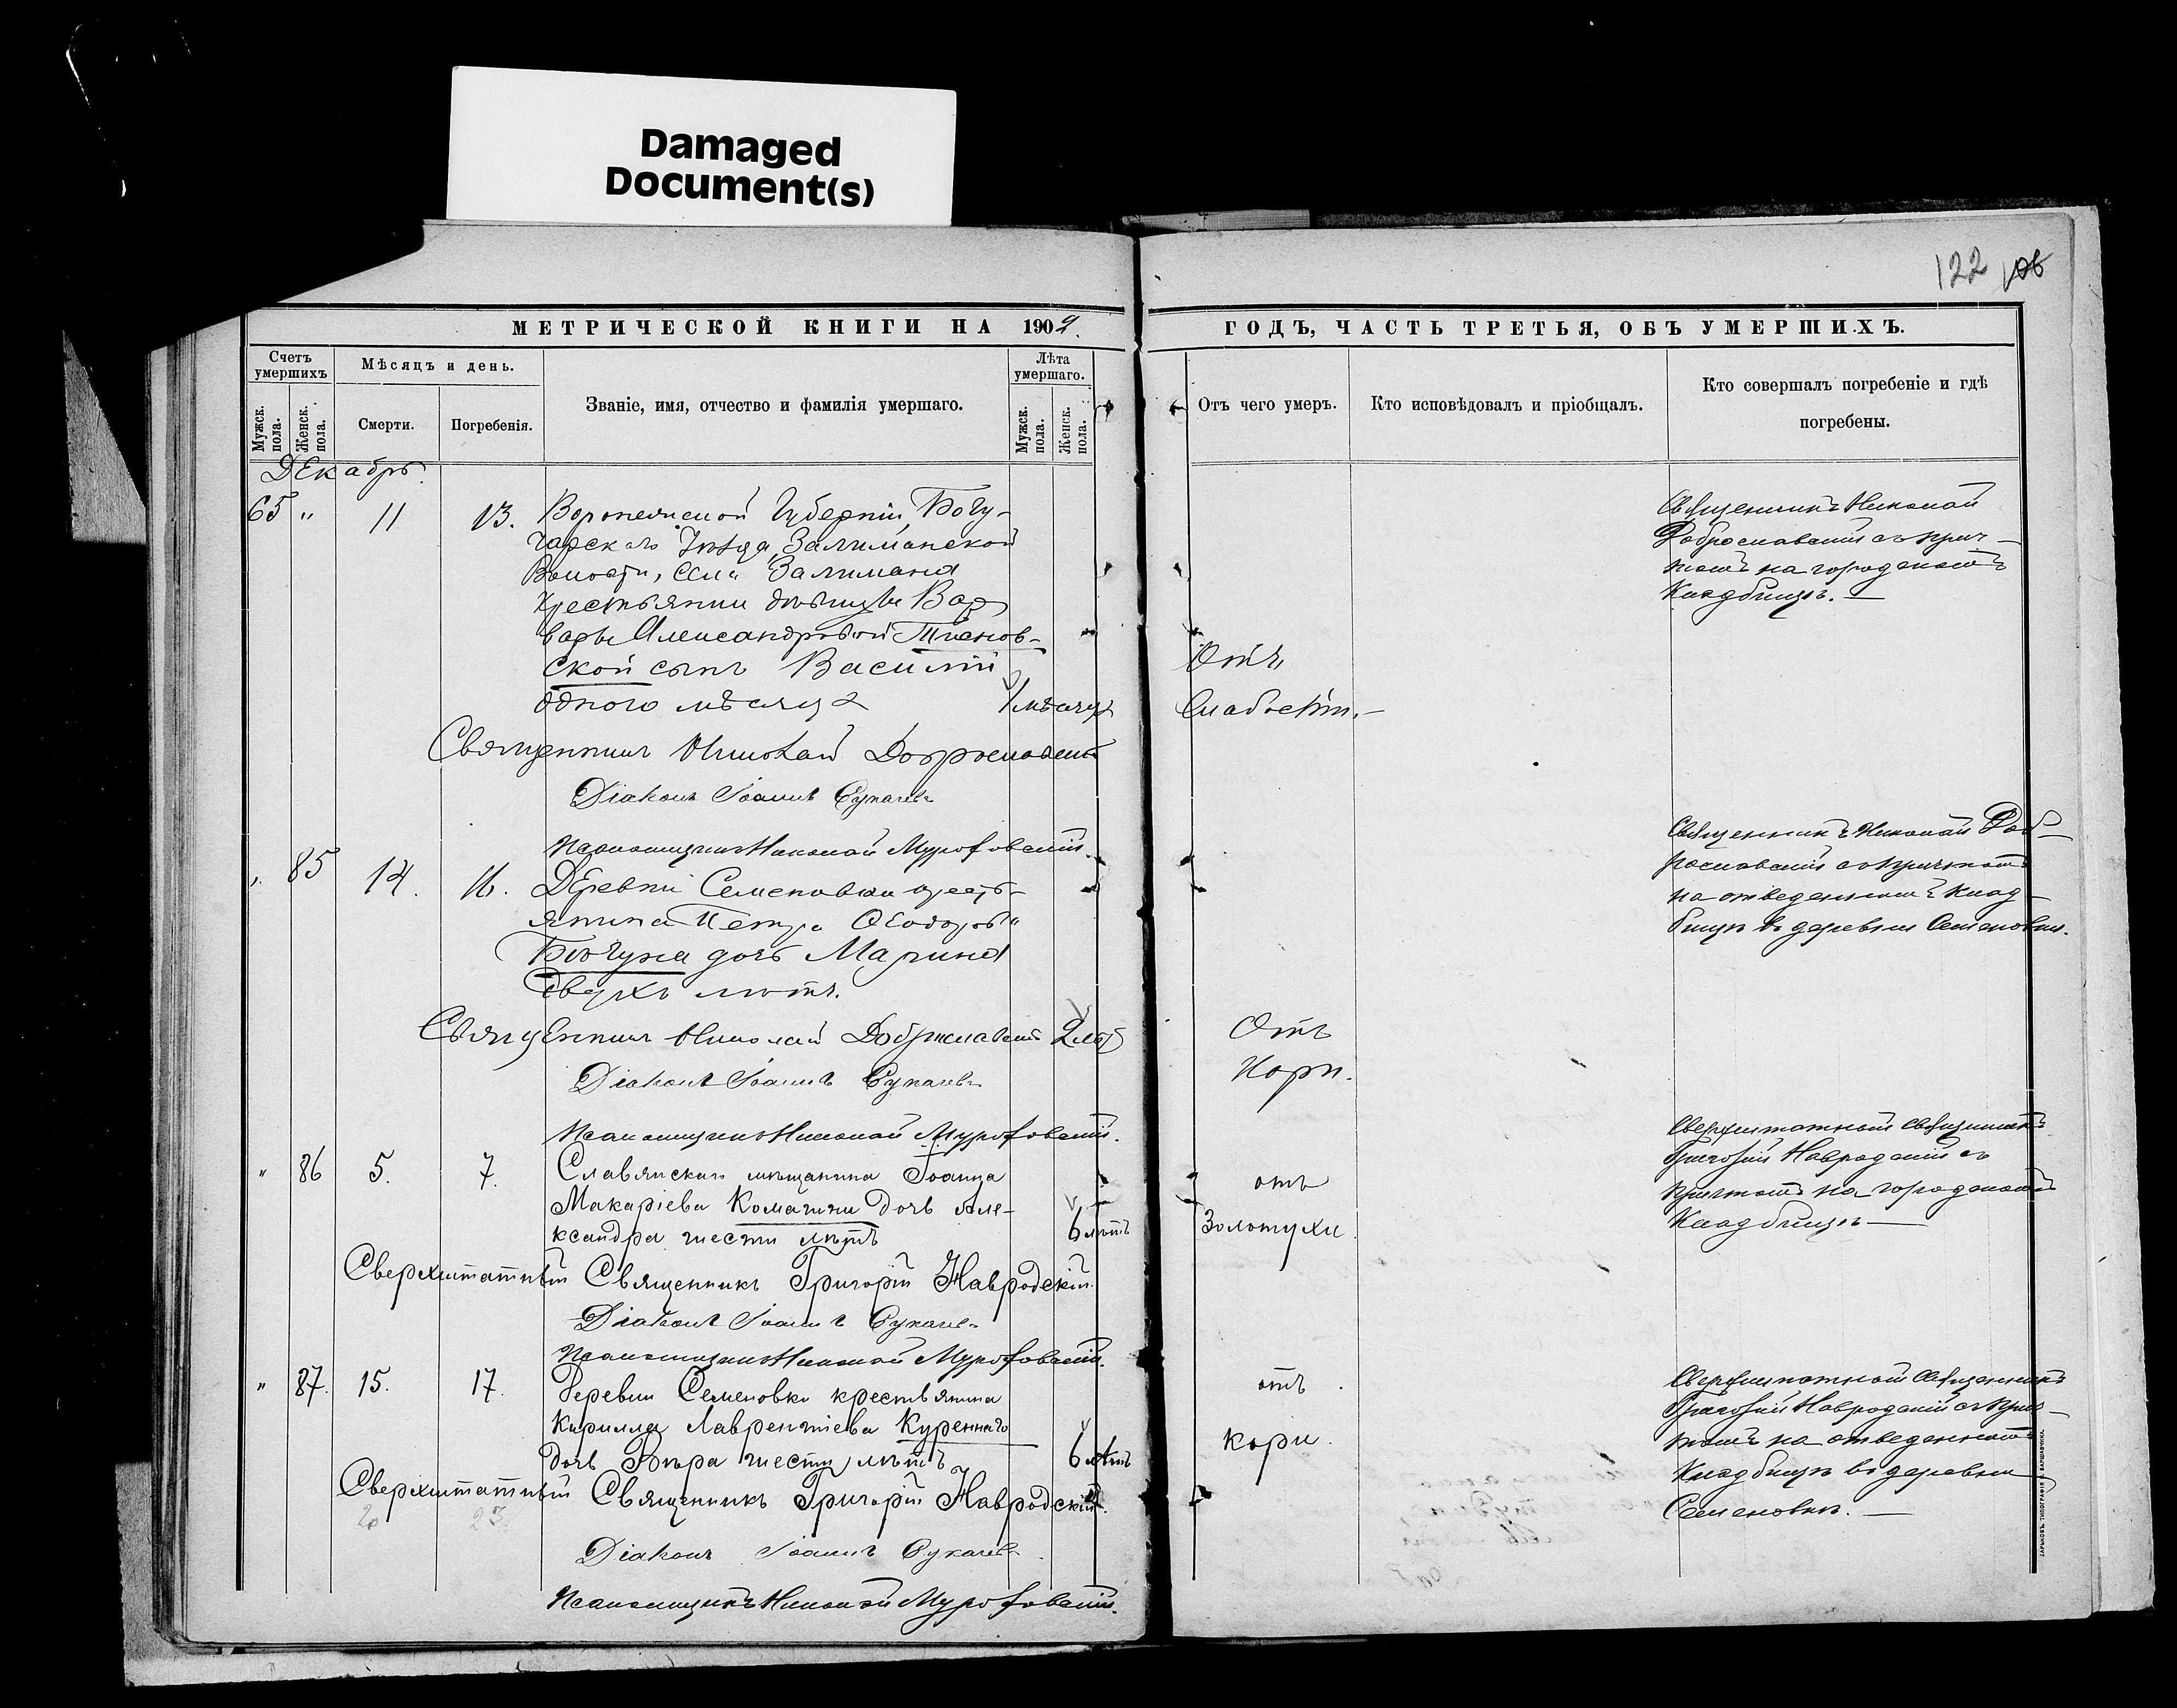 Damaged
Document(s)
122 106
МЕТРИЧЕСКОЙ КНИГИ НА 1902
Счетъ умершихъ
Мѣсяцъ и день.
Званіе, имя, отчество и фамилія умершаго.
Лѣта умершаго.
Мужск. пола.
Женск. пола.
Смерти.
Погребенія.
Мужск. пола.
Женск. пола.
Декабрь
65 " 11 13. Воронежской Губерніи, Богу-
чарскаго Уѣзда, Залиманской
Волости, села Залимана
крестьянки дѣвицы Вар
вары Александровой
ской сынъ Василій
одного мѣсяца 1 мѣсяцъ
Священникъ Николай Доброславскій
Діаконъ Іоаннъ Сукачевъ
Псаломщикъ Николай Мурофовскій.
" 85 14. 16. Деревни Семеновки кресть-
янина Петра Ѳеодоров
дочь Марина
двухъ лѣтъ.
Священникъ Николай Доброславскій 2 лѣт
Діаконъ Іоаннъ Сукачевъ
Псаломщикъ Николай Мурофовскій.
" 86 5. 7. Славянскаго мѣщанина Іоанна
Макаріева Комагини дочь Але-
ксандра шести лѣтъ 6 лѣтъ
Сверхштатный Священникъ Григорій Навродскій.
Діаконъ Іоаннъ Сукачевъ
Псаломщикъ Николай Мурофовскій.
" 87. 15. 17. Деревни Семеновки крестьянина
Кирилла Лаврентіева Куреннаго
дочь Вѣра шести лѣтъ 6 лѣтъ
Сверхштатный Священникъ Григорій Навродскій.
20 23.
Діаконъ Іоаннъ Сукачевъ
Псаломщикъ Николай Мурофовскій.
ГОДЪ, ЧАСТЬ ТРЕТЬЯ, ОБЪ УМЕРШИХЪ.
Отъ чего умеръ.
Кто исповѣдовалъ и пріобщалъ.
Кто совершалъ погребеніе и гдѣ
погребены.
Священникъ Николай
Доброславскій съ прич-
томъ на городскомъ
Кладбищѣ.—
Отъ
Слабости.—
Священникъ Николай Доб-
рославскій съ причтомъ
на отведенномъ Клад-
бищѣ въ деревни Семеновки.
Отъ
Кори.
Сверхштатный Священникъ
Григорій Навродскій съ
причтомъ на городскомъ
Кладбищѣ—
отъ
Золотухи
Сверхштатный Священникъ
Григорій Навродскій съ прич-
томъ на отведенномъ
Кладбищѣ въ деревни
Семеновкѣ.—
отъ
кори.